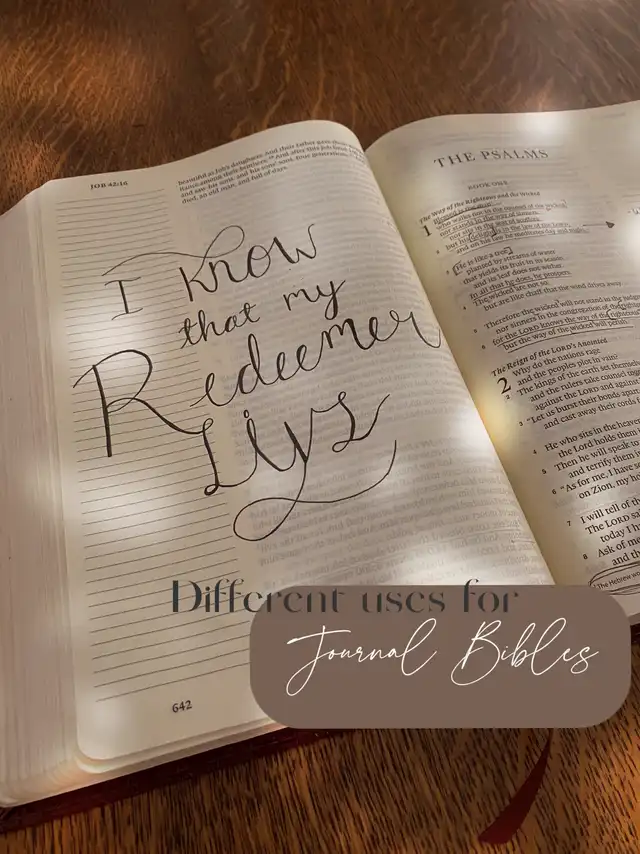 JOB 42:16
beautiful as Job's daughters. And their father gave them
itance among their brothers. 16 And after this Job lived
and saw his sons, and his sons' sons, four generations.
died, an old man, and full of days.
I know
that my
Redeemer
Lives
642
THE PSALMS
BOOK ONE
The Way of the Righteous and the Wicked
1 Blessed is the man
who walks not in the counsel of the wicked,
nor stands in the way of sinners,
nor sits in the seat of scoffers;
2 but his delight is in the law of the LORD,
and on his law he meditates day and night.
3 He is like a tree
planted by streams of water
that yields its fruit in its season,
and its leaf does not wither.
In all that he does, he prospers.
4 The wicked are not so,
but are like chaff that the wind drives away.
5 Therefore the wicked will not stand in the
nor sinners in the congregation of the
6 for the LORD knows the way of the righteous,
but the way of the wicked will perish.
The Reign of the LORD's Anointed
2 Why do the nations rage
and the peoples plot in vain?
2 The kings of the earth set themselves
and the rulers take counsel
against the LORD and against
3 "Let us burst their bonds apart
and cast away their cords
4 He who sits in the heavens
the Lord holds them
5 Then he will speak
and terrify them
6 "As for me, I have
on Zion, my
7 I will tell of
The LORD
today I
8 Ask of me
and
The Hebrew
Different uses for
Journal Bibles